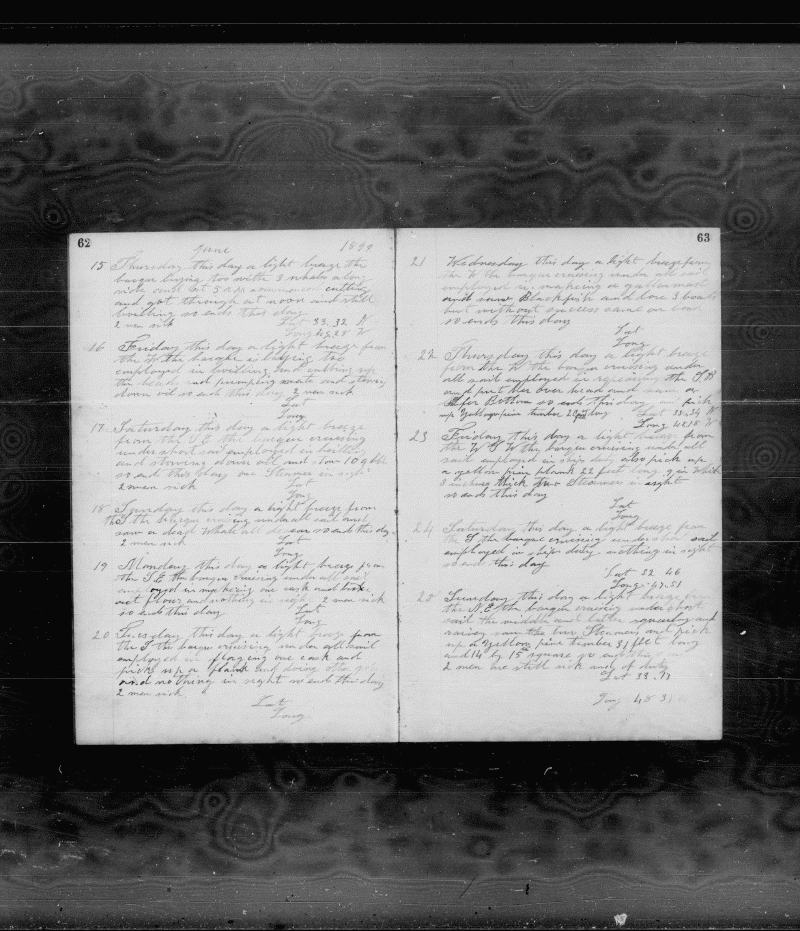 62
June 1899
15 Thursday this day a light breeze the
barque laying too with 3 whales along
side and at 5 a.m. commenced cutting
and got through at noon and still
boiling so ends this day
2 men sick Lat 33.32 N
Long 48.28 W
16 Friday this day a light breeze from
the W the barque is laying too
employed in boiling and cutting up
the head and pumping and stowing
down oil so ends this day 2 men sick
Lat
Long
17 Saturday this day a light breeze
from the S E the barque cruising
under short sail employed in boiling
and stowing down oil and
so ends this day one Steamer in sight
2 men sick Lat
Long
18 Sunday this day a light breeze from
the S the barque cruising under all sail and
saw a dead Whale all so ends this day
2 men sick Lat
Long
19 Monday this day a light breeze from
the S E the barque cruising under all sail
employed in one cask and
and nothing in sight 2 men sick
so ends this day Lat
Long
20 Tuesday this day a light breeze from
the S the barque cruising under all sail
employed in one cask and
pick up a plank and
and nothing in sight so ends this day
2 men sick
Lat
Long
63
21 Wednesday this day a light breeze from
the W the barque cruising under all sail
employed in making a
and saw Blackfish and lore 3 boats
but without success came on board
so ends this day
Lat
Long
22 Thursday this day a light breeze
from the W the barque cruising under
all sail employed in repairing the S B
and put her over head and saw a
Bottom so ends this day and pick
up Yellow pine timber 29 ft long Lat 33.34 N
Long 48.18 W
23 Friday this day a light breeze from
the W S W the barque cruising under all
sail employed in ships duty also pick up
a yellow pine plank 22 feet long 9 in Wide
3 inches thick Steamer in sight
so ends this day
Lat
Long
24 Saturday this day a light breeze from
the S the barque cruising under short sail
employed in ships duty nothing in sight
so ends this day
Lat 32 46
Long 47.51
25 Sunday this day a light breeze from
the N.E the barque cruising under short
sail the middle and latter squally and
rainey saw Steamers and pick
up a Yellow pine timber 31 feet long
and 14 by 15 square so ends this
2 men are still sick and of duty
Lat 33
Long 48 3